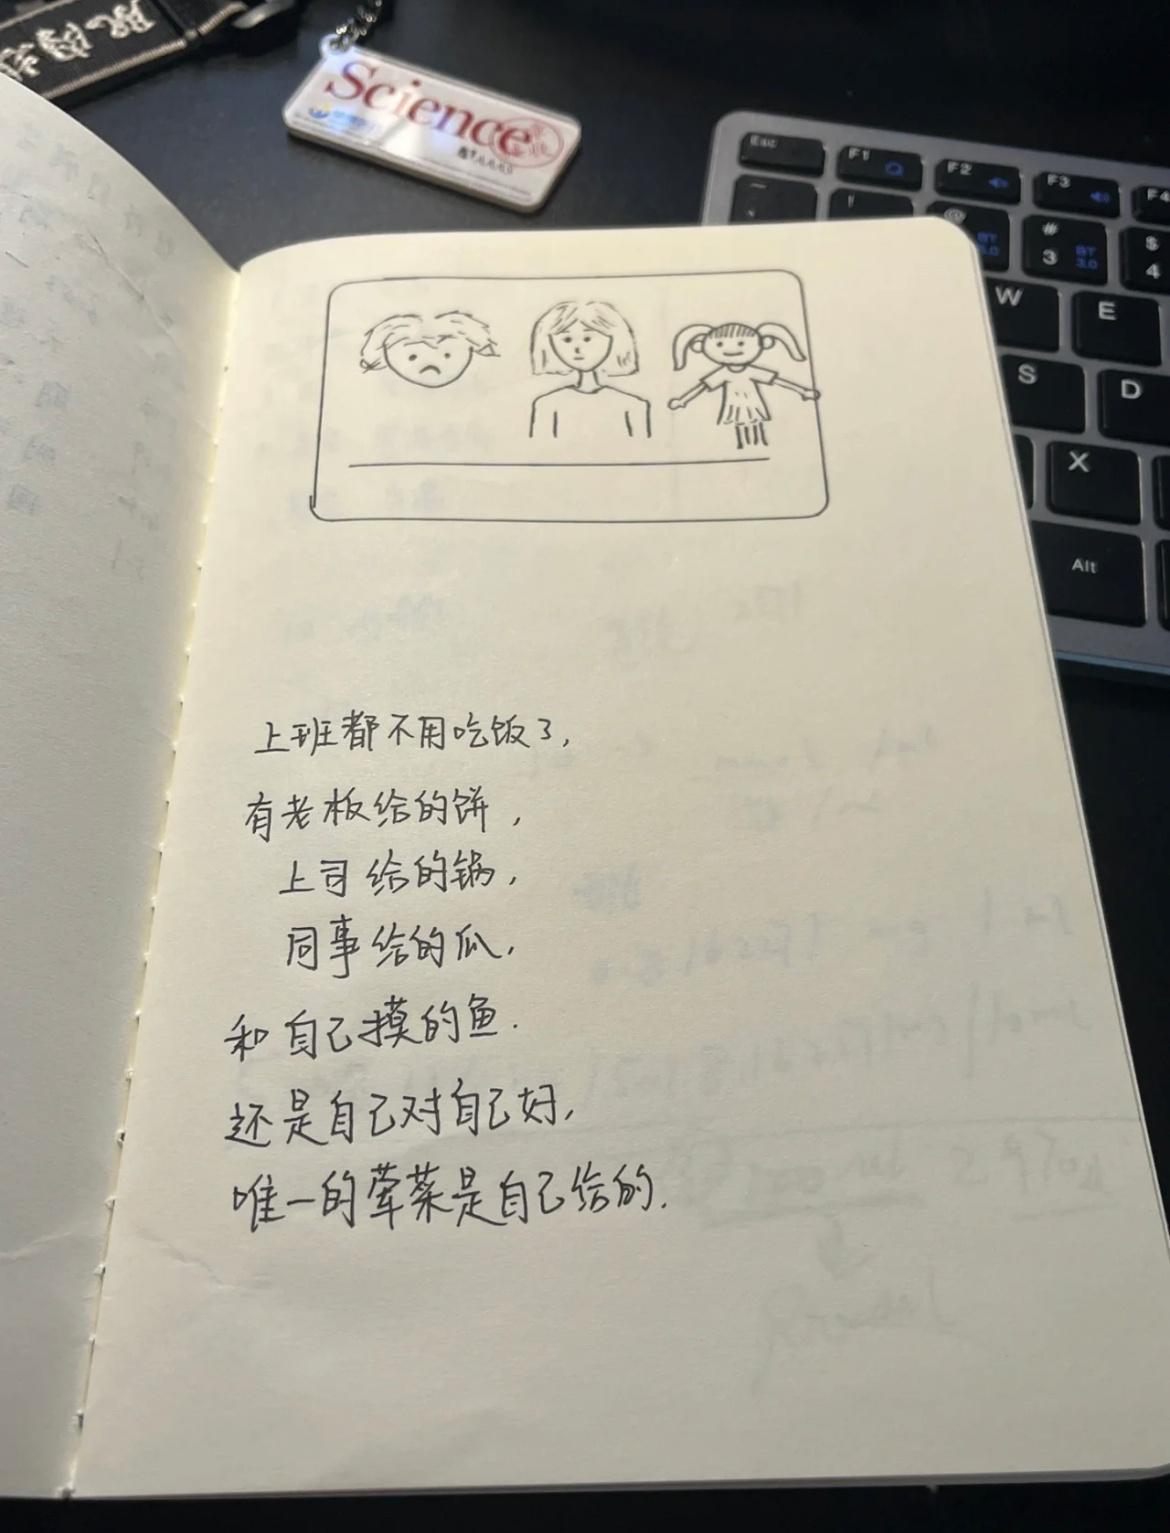 Science
Esc
F1
F2
F3
F4
!
@
#
3
BT
3.0
$
4
W
E
S
D
X
Alt
上班都不用吃饭了,
有老板给的饼,
上司给的锅,
同事给的瓜,
和自己摸的鱼.
还是自己对自己好,
唯一的荤菜是自己给的.